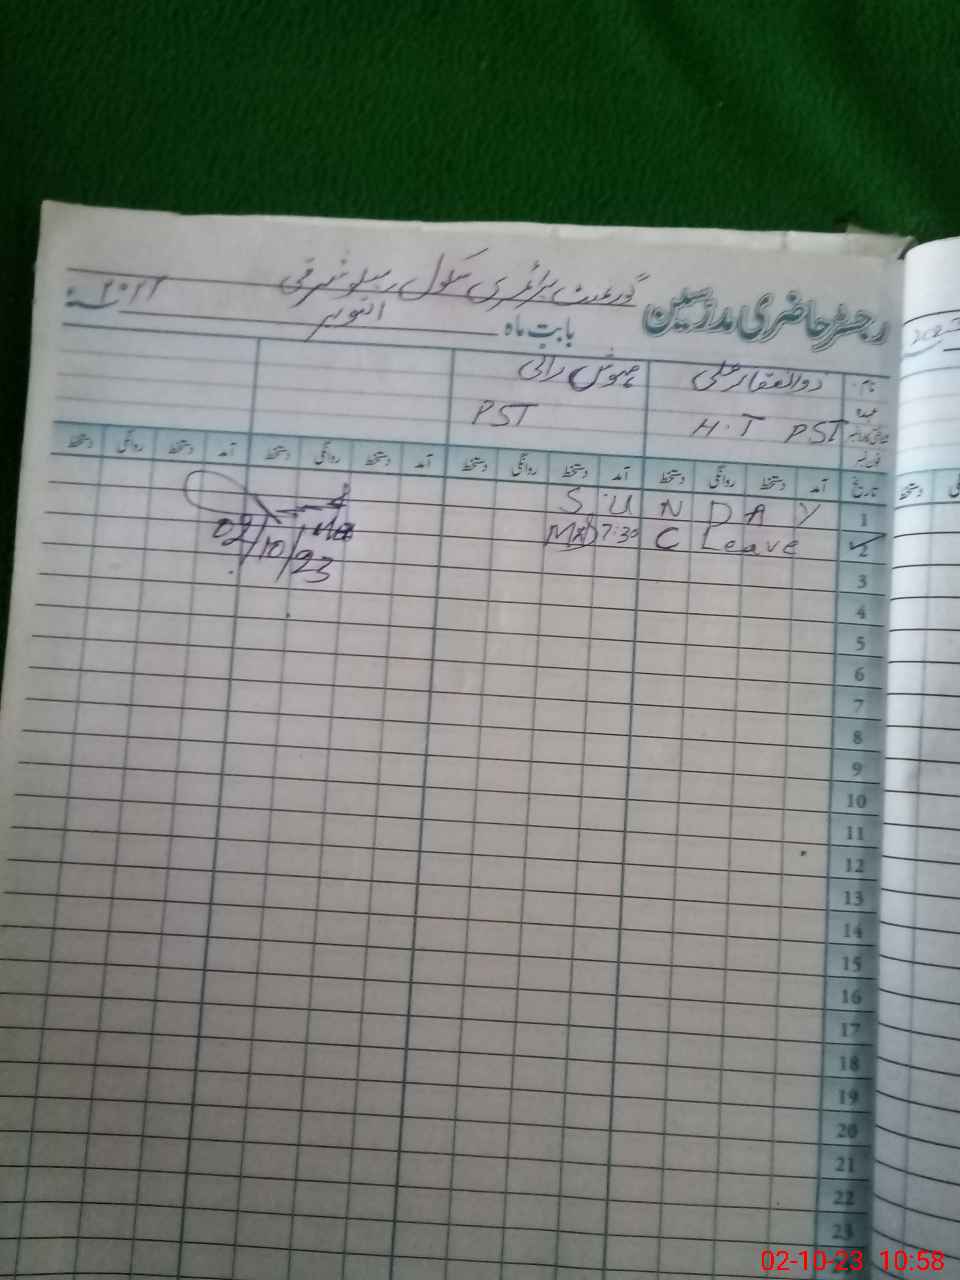 رجسٹر حاضری مدرسین گورنمنٹ پرائمری سکول
بابت ماہ اکتوبر
نام ذوالفقار علی رانی
عہدہ H.T PST PST
تاریخ آمد دستخط روانگی دستخط آمد دستخط روانگی دستخط آمد دستخط روانگی دستخط آمد دستخط روانگی دستخط
1 S U N D A Y
2 C Leave 7:30
02/10/23
3
4
5
6
7
8
9
10
11
12
13
14
15
16
17
18
19
20
21
22
23
02-10-23 10:58